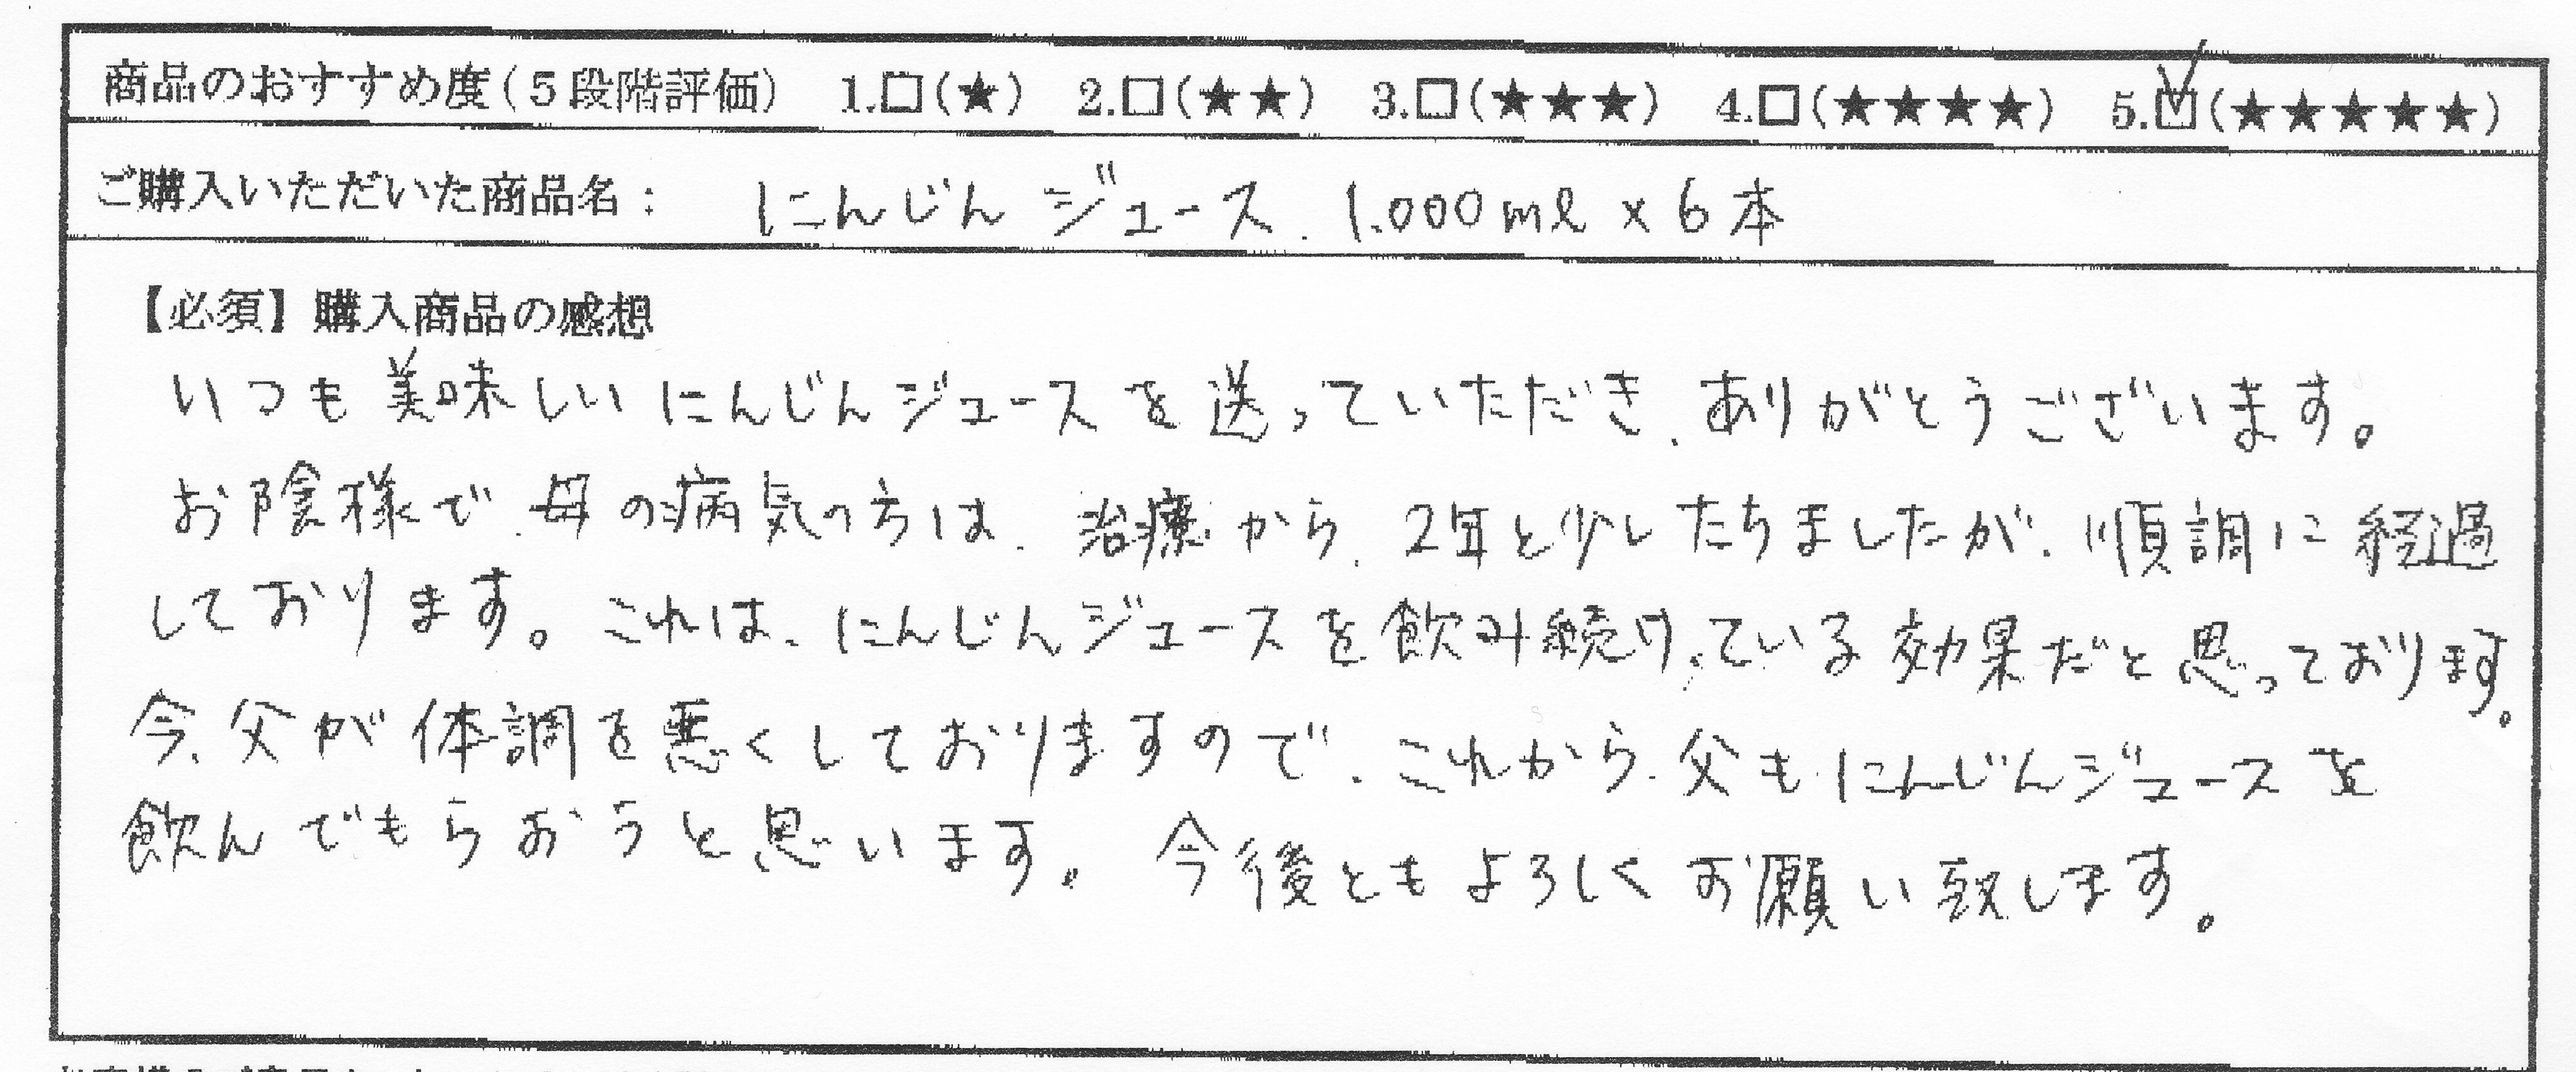 商品のおすすめ度(5段階評価) 1.□(★) 2.□(★★) 3.□(★★★) 4.□(★★★★) 5.☑(★★★★★)
ご購入いただいた商品名: にんじんジュース、1.000ml×6本
【必須】購入商品の感想
いつも美味しいにんじんジュースを送っていただき、ありがとうございます。
お陰様で、母の病気の方は、治療から、2年と少したちましたが、順調に経過
しております。これは、にんじんジュースを飲み続けている効果だと思っております。
今、父が体調を悪くしておりますので、これから、父もにんじんジュースを
飲んでもらおうと思います。今後ともよろしくお願い致します。